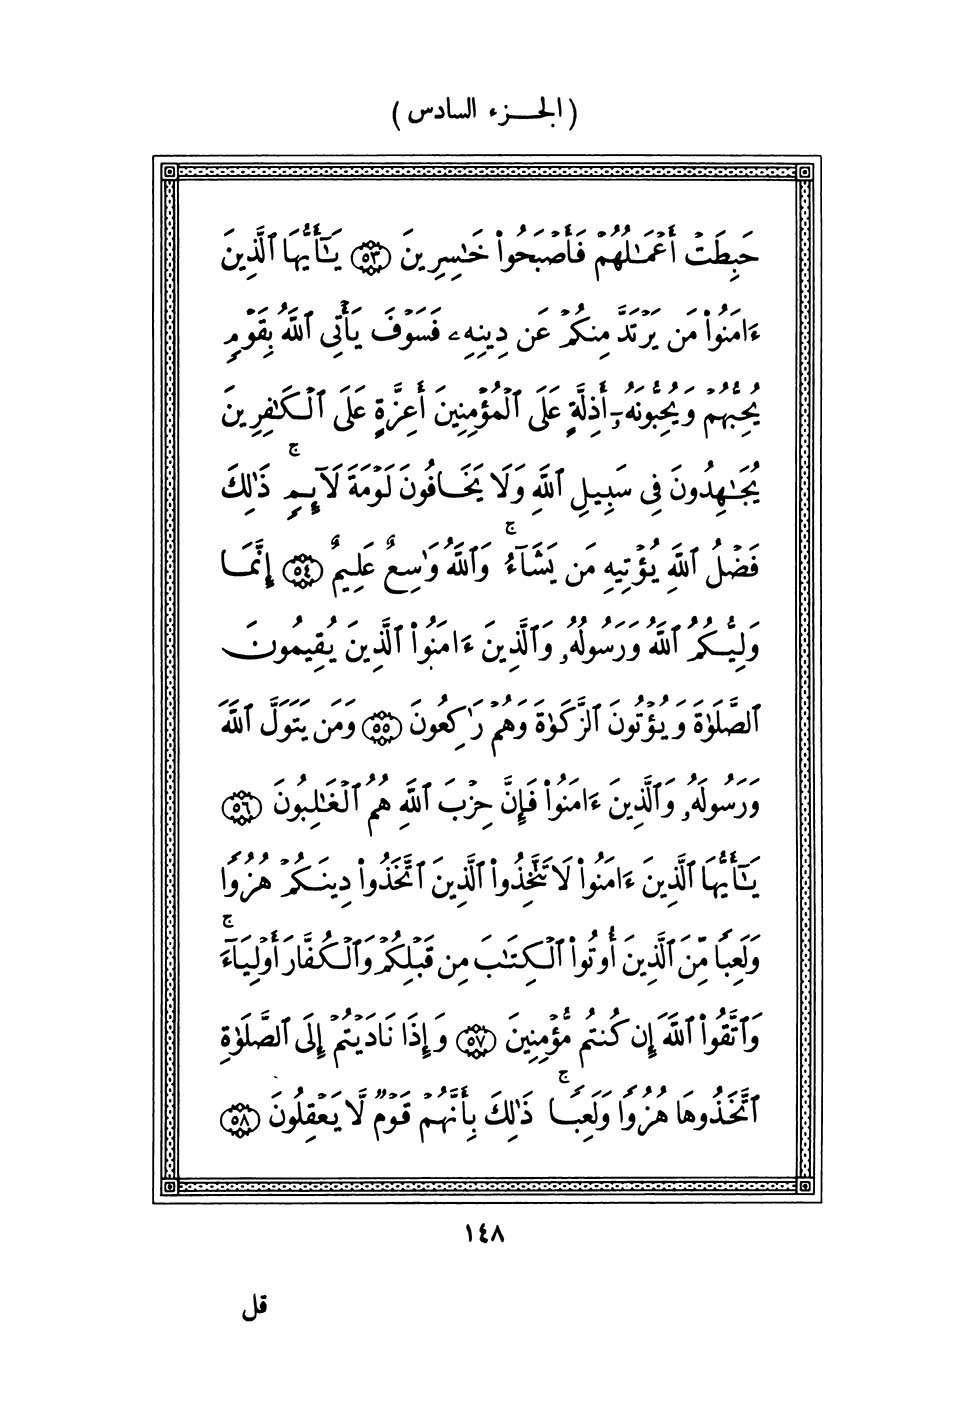 (الجزء السادس)
حَبِطَتْ أَعْمَـٰلُهُمْ فَأَصْبَحُوا۟ خَـٰسِرِينَ ۝٥٣ يَـٰٓأَيُّهَا ٱلَّذِينَ
ءَامَنُوا۟ مَن يَرْتَدَّ مِنكُمْ عَن دِينِهِۦ فَسَوْفَ يَأْتِى ٱللَّهُ بِقَوْمٍ
يُحِبُّهُمْ وَيُحِبُّونَهُۥٓ أَذِلَّةٍ عَلَى ٱلْمُؤْمِنِينَ أَعِزَّةٍ عَلَى ٱلْكَـٰفِرِينَ
يُجَـٰهِدُونَ فِى سَبِيلِ ٱللَّهِ وَلَا يَخَافُونَ لَوْمَةَ لَآئِمٍ ۚ ذَٰلِكَ
فَضْلُ ٱللَّهِ يُؤْتِيهِ مَن يَشَآءُ ۚ وَٱللَّهُ وَٰسِعٌ عَلِيمٌ ۝٥٤ إِنَّمَا
وَلِيُّكُمُ ٱللَّهُ وَرَسُولُهُۥ وَٱلَّذِينَ ءَامَنُوا۟ ٱلَّذِينَ يُقِيمُونَ
ٱلصَّلَوٰةَ وَيُؤْتُونَ ٱلزَّكَوٰةَ وَهُمْ رَٰكِعُونَ ۝٥٥ وَمَن يَتَوَلَّ ٱللَّهَ
وَرَسُولَهُۥ وَٱلَّذِينَ ءَامَنُوا۟ فَإِنَّ حِزْبَ ٱللَّهِ هُمُ ٱلْغَـٰلِبُونَ ۝٥٦
يَـٰٓأَيُّهَا ٱلَّذِينَ ءَامَنُوا۟ لَا تَتَّخِذُوا۟ ٱلَّذِينَ ٱتَّخَذُوا۟ دِينَكُمْ هُزُوًا
وَلَعِبًا مِّنَ ٱلَّذِينَ أُوتُوا۟ ٱلْكِتَـٰبَ مِن قَبْلِكُمْ وَٱلْكُفَّارَ أَوْلِيَآءَ ۚ
وَٱتَّقُوا۟ ٱللَّهَ إِن كُنتُم مُّؤْمِنِينَ ۝٥٧ وَإِذَا نَادَيْتُمْ إِلَى ٱلصَّلَوٰةِ
ٱتَّخَذُوهَا هُزُوًا وَلَعِبًا ۚ ذَٰلِكَ بِأَنَّهُمْ قَوْمٌ لَّا يَعْقِلُونَ ۝٥٨
١٤٨
قل